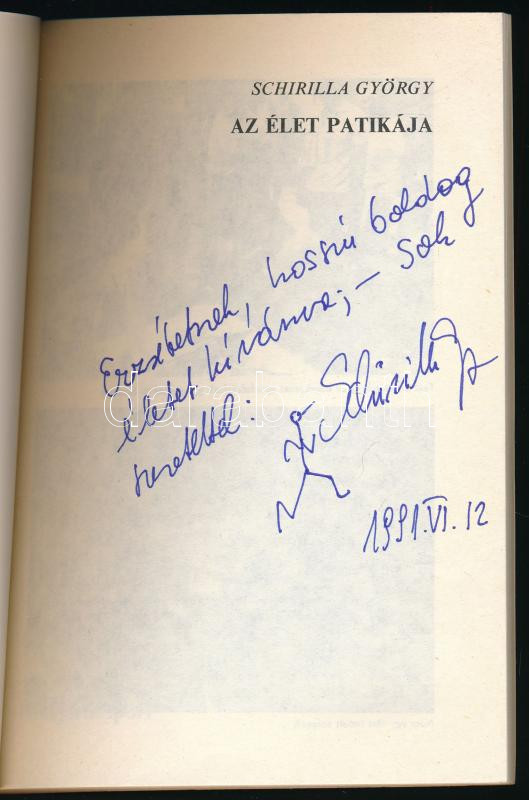 SCHIRILLA GYÖRGY
AZ ÉLET PATIKÁJA
Erzsébetnek, hosszú boldog
életet kívánva; – Sok
szeretettel:
Schirilla Gy
1991.VI.12
darabanth.com